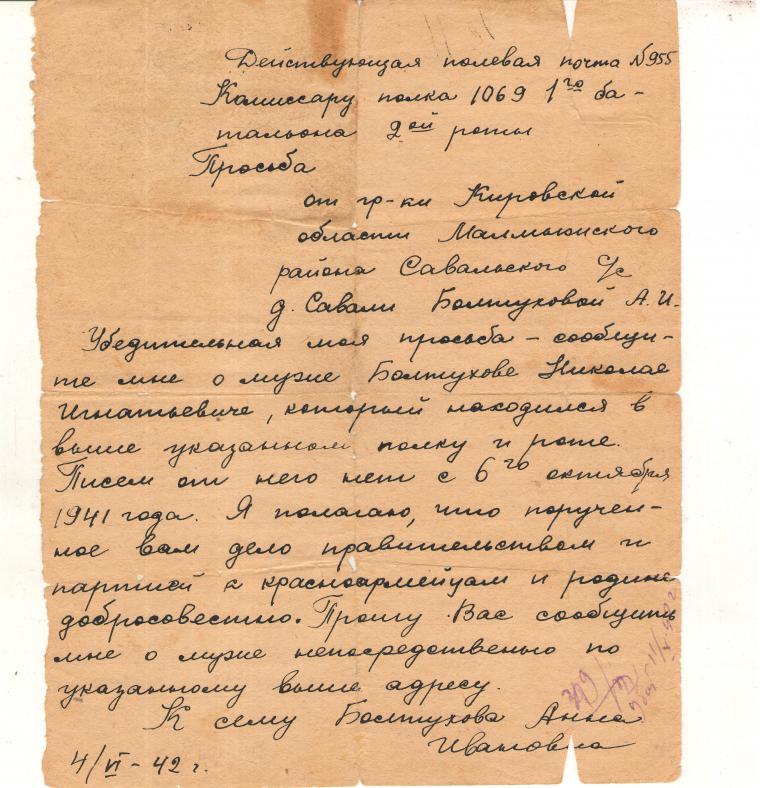 Действующая полевая почта №955
Комиссару полка 1069 1го ба-
тальона 2ой роты
Просьба
от гр-ки Кировской
области Малмыжского
района Савальского с/с
д. Савали Болтуховой А.И.
Убедительная моя просьба – сообщи-
те мне о муже Болтухове Николае
Игнатьевиче, который находился в
выше указанном полку и роте.
Писем от него нет с 6го октября
1941 года. Я полагаю, что поручен-
ное вам дело правительством и
партией к красноармейцам и родине
добросовестно. Прошу Вас сообщить
мне о муже непосредственно по
указанному выше адресу.
К сему Болтухова Анна
Ивановна
4/VI – 42 г.